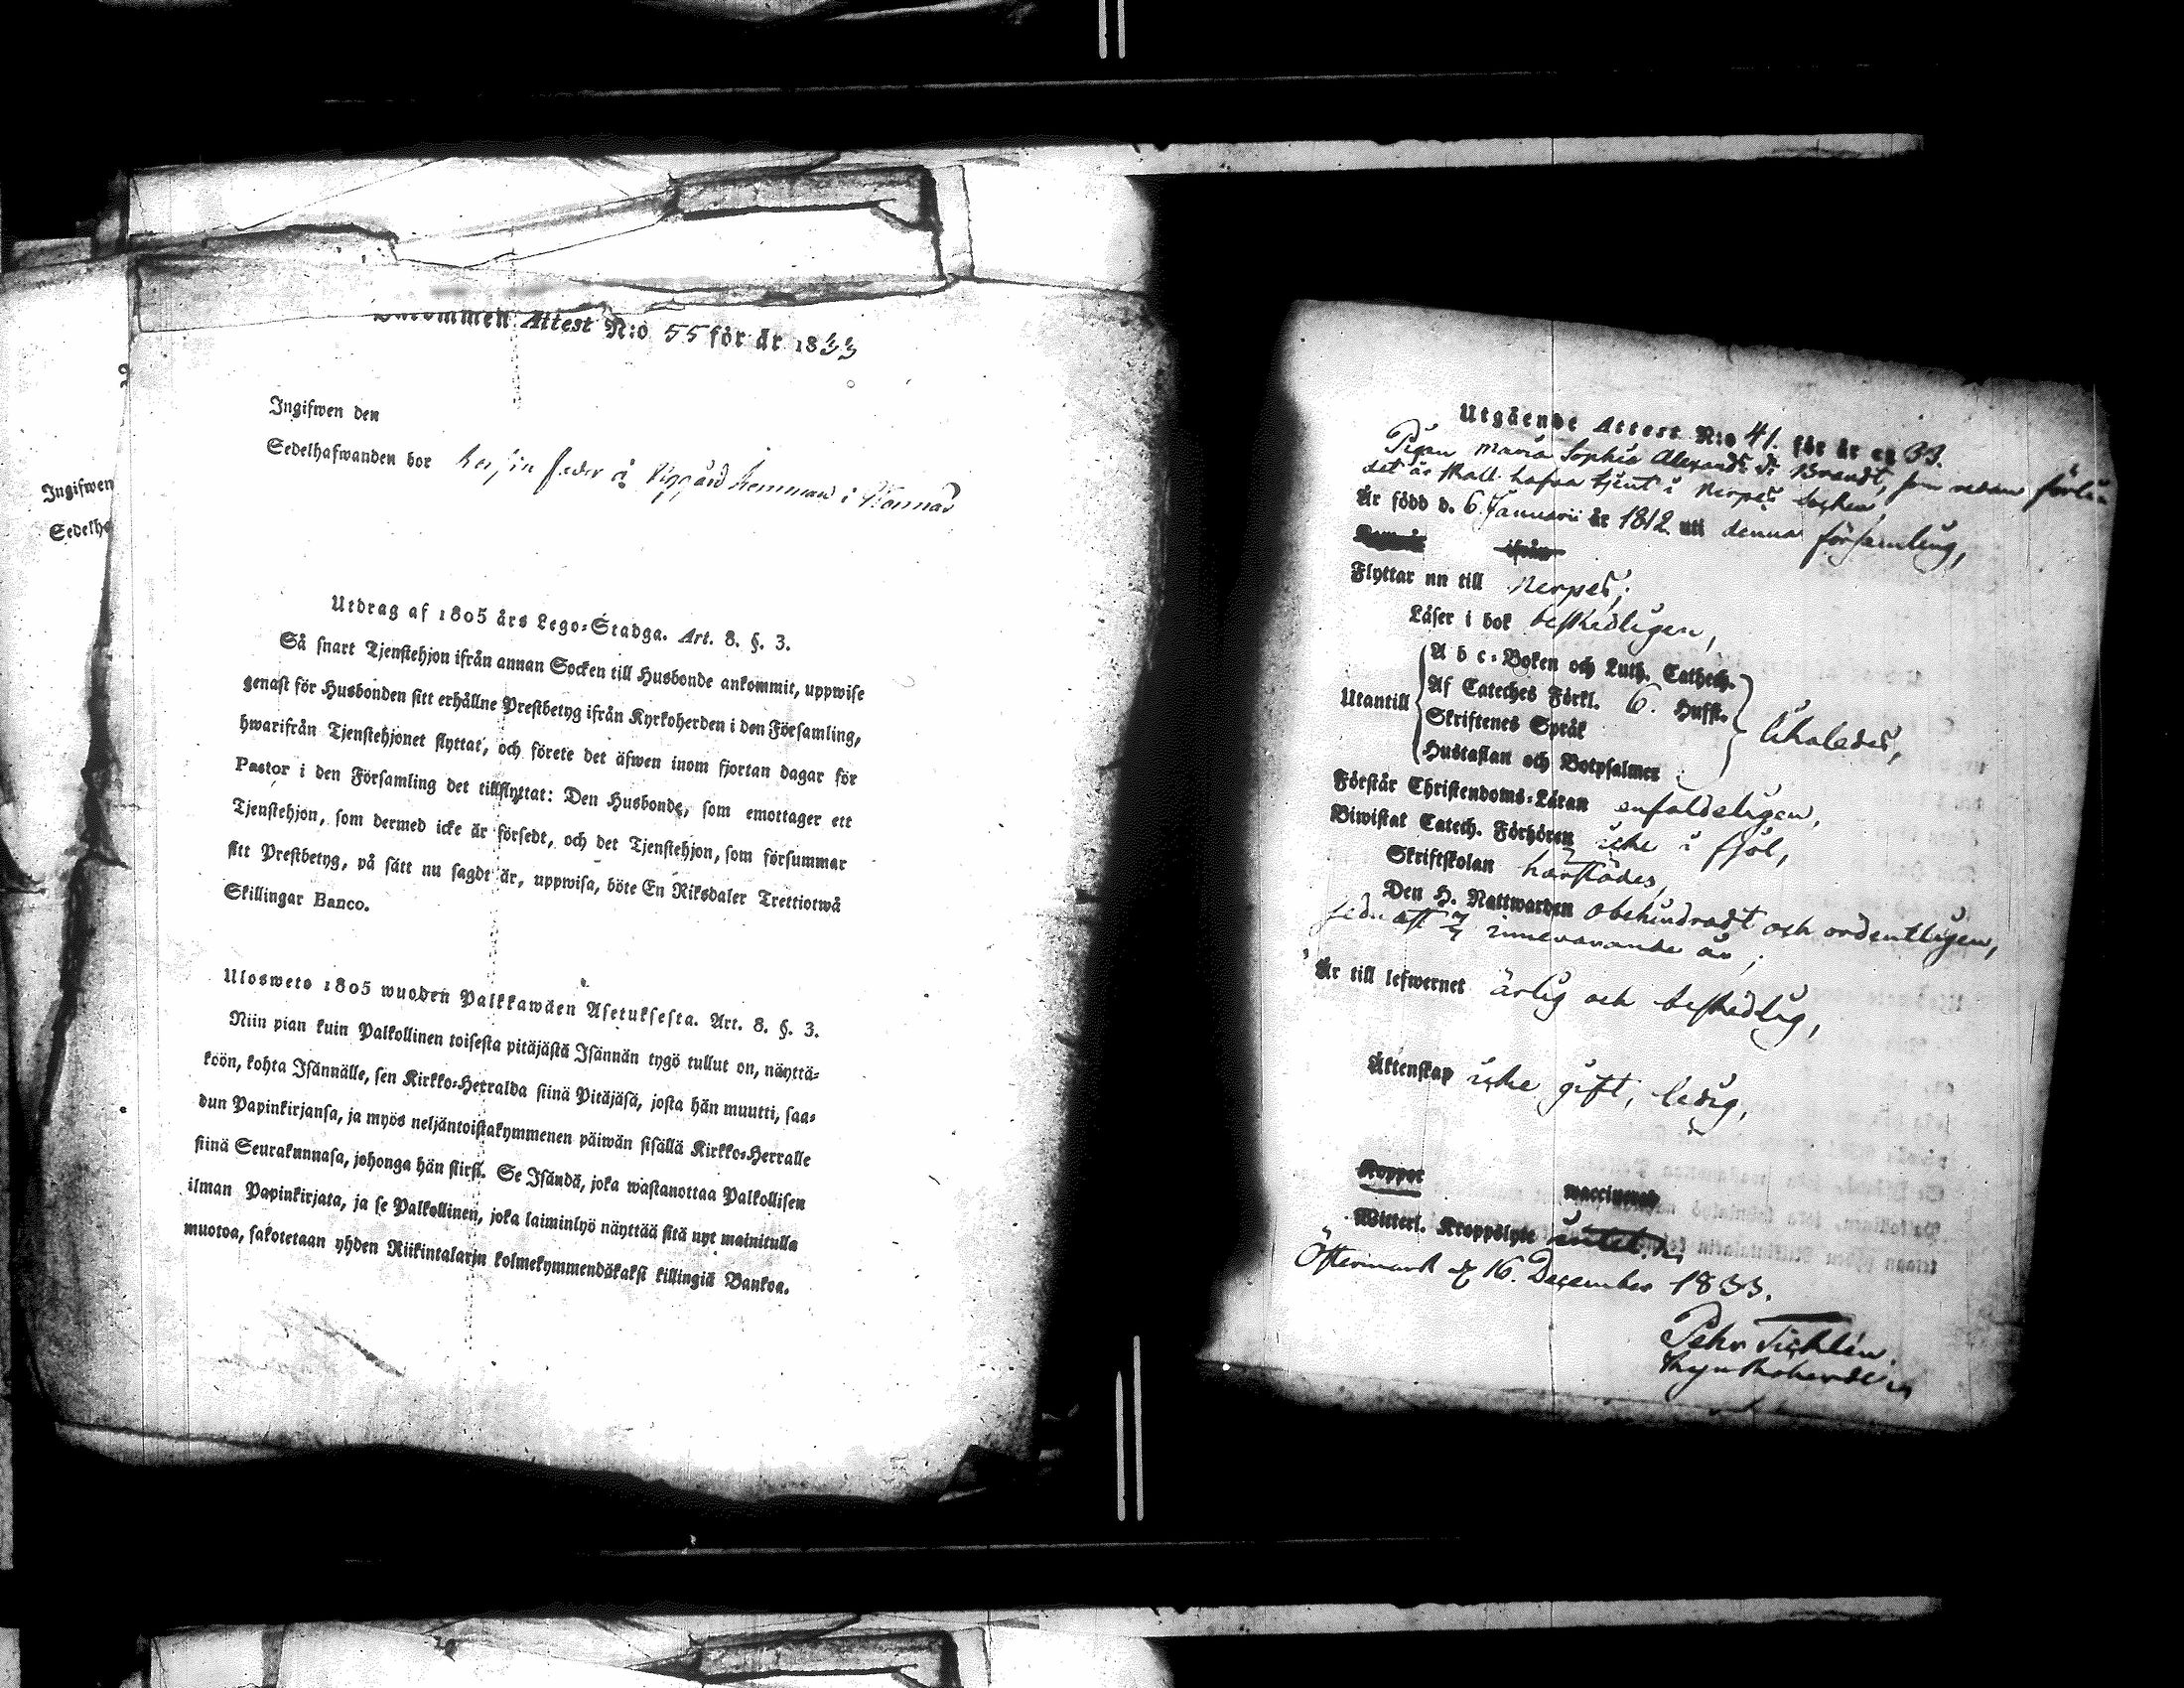 Ingifwen
Sedelha
Inkommen Attest N:o 55 för år 1833
Ingifwen den
Sedelhafwanden bor hos sin fader å hemman i
Utdrag af 1805 års Lego-Stadga. Art. 8. §. 3.
Så snart Tjenstehjon ifrån annan Socken till Husbonde ankommit, uppwise
genast för Husbonden sitt erhållne Prestbetyg ifrån Kyrkoherden i den Församling,
hwarifrån Tjenstehjonet flyttat, och förete det äfwen inom fjortan dagar för
Pastor i den Församling det tillflyttat: Den Husbonde, som emottager ett
Tjenstehjon, som dermed icke är försedt, och det Tjenstehjon, som försummar
sitt Prestbetyg, på sätt nu sagdt är, uppwisa, böte En Riksdaler Trettiotwå
Skillingar Banco.
Ulosweto 1805 wuoden Palkkawäen Asetuksesta. Art. 8. §. 3.
Niin pian kuin Palkollinen toisesta pitäjästä Isännän tygö tullut on, näyttä-
köön, kohta Isännälle, sen Kirkko-Herralda siinä Pitäjäsä, josta hän muutti, saa-
dun Papinkirjansa, ja myös neljäntoistakymmenen päiwän sisällä Kirkko-Herralle
siinä Seurakunnasa, johonga hän siirsi. Se Isändä, joka wastanottaa Palkollisen
ilman Papinkirjata, ja se Palkollinen, joka laiminlyö näyttää sitä nyt mainitulla
muotoa, sakotetaan yhden Riikintalarin kolmekymmendäkaksi killingiä Bankoa.
Utgående Attest N:o 41. för år 1833.
Pigan Maria Sophia Alexandr. dr Brandt, som sedan förlin
det år skall hafva tjent i Nerpes Socken,
Är född d. 6 Januarii år 1812 uti denna församling,
ifrån
Flyttar nu till Nerpes;
Läser i bok beskedligen,
Utantill
A b c-Boken och Luth. Cathech.
Af Cateches Förkl. 6. Hufst.
Skriftenes Språk
Hustaflan och Botpsalmer
likaledes,
Förstår Christendoms-Läran enfaldeligen,
Biwistat Catech. Förhören icke i fjol,
Skriftskolan härstädes,
Den H. Nattwarden obehindradt och ordentligen,
innevarande år;
Är till lefwernet ärlig och beskedlig,
Äktenskap icke gift, ledig,
Koppor vaccinerad
Witterl. Kroppslyte intet.
Östermark d. 16. December 1833.
Pehr Tichlén.
Kyrkoherde